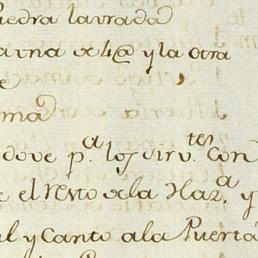 iedra lavrada
a vna de 4@ y la otra
e
ma
dove p.a los sirv.tes con
e el resto de la Haz.a y
al y Canto a la Puerta